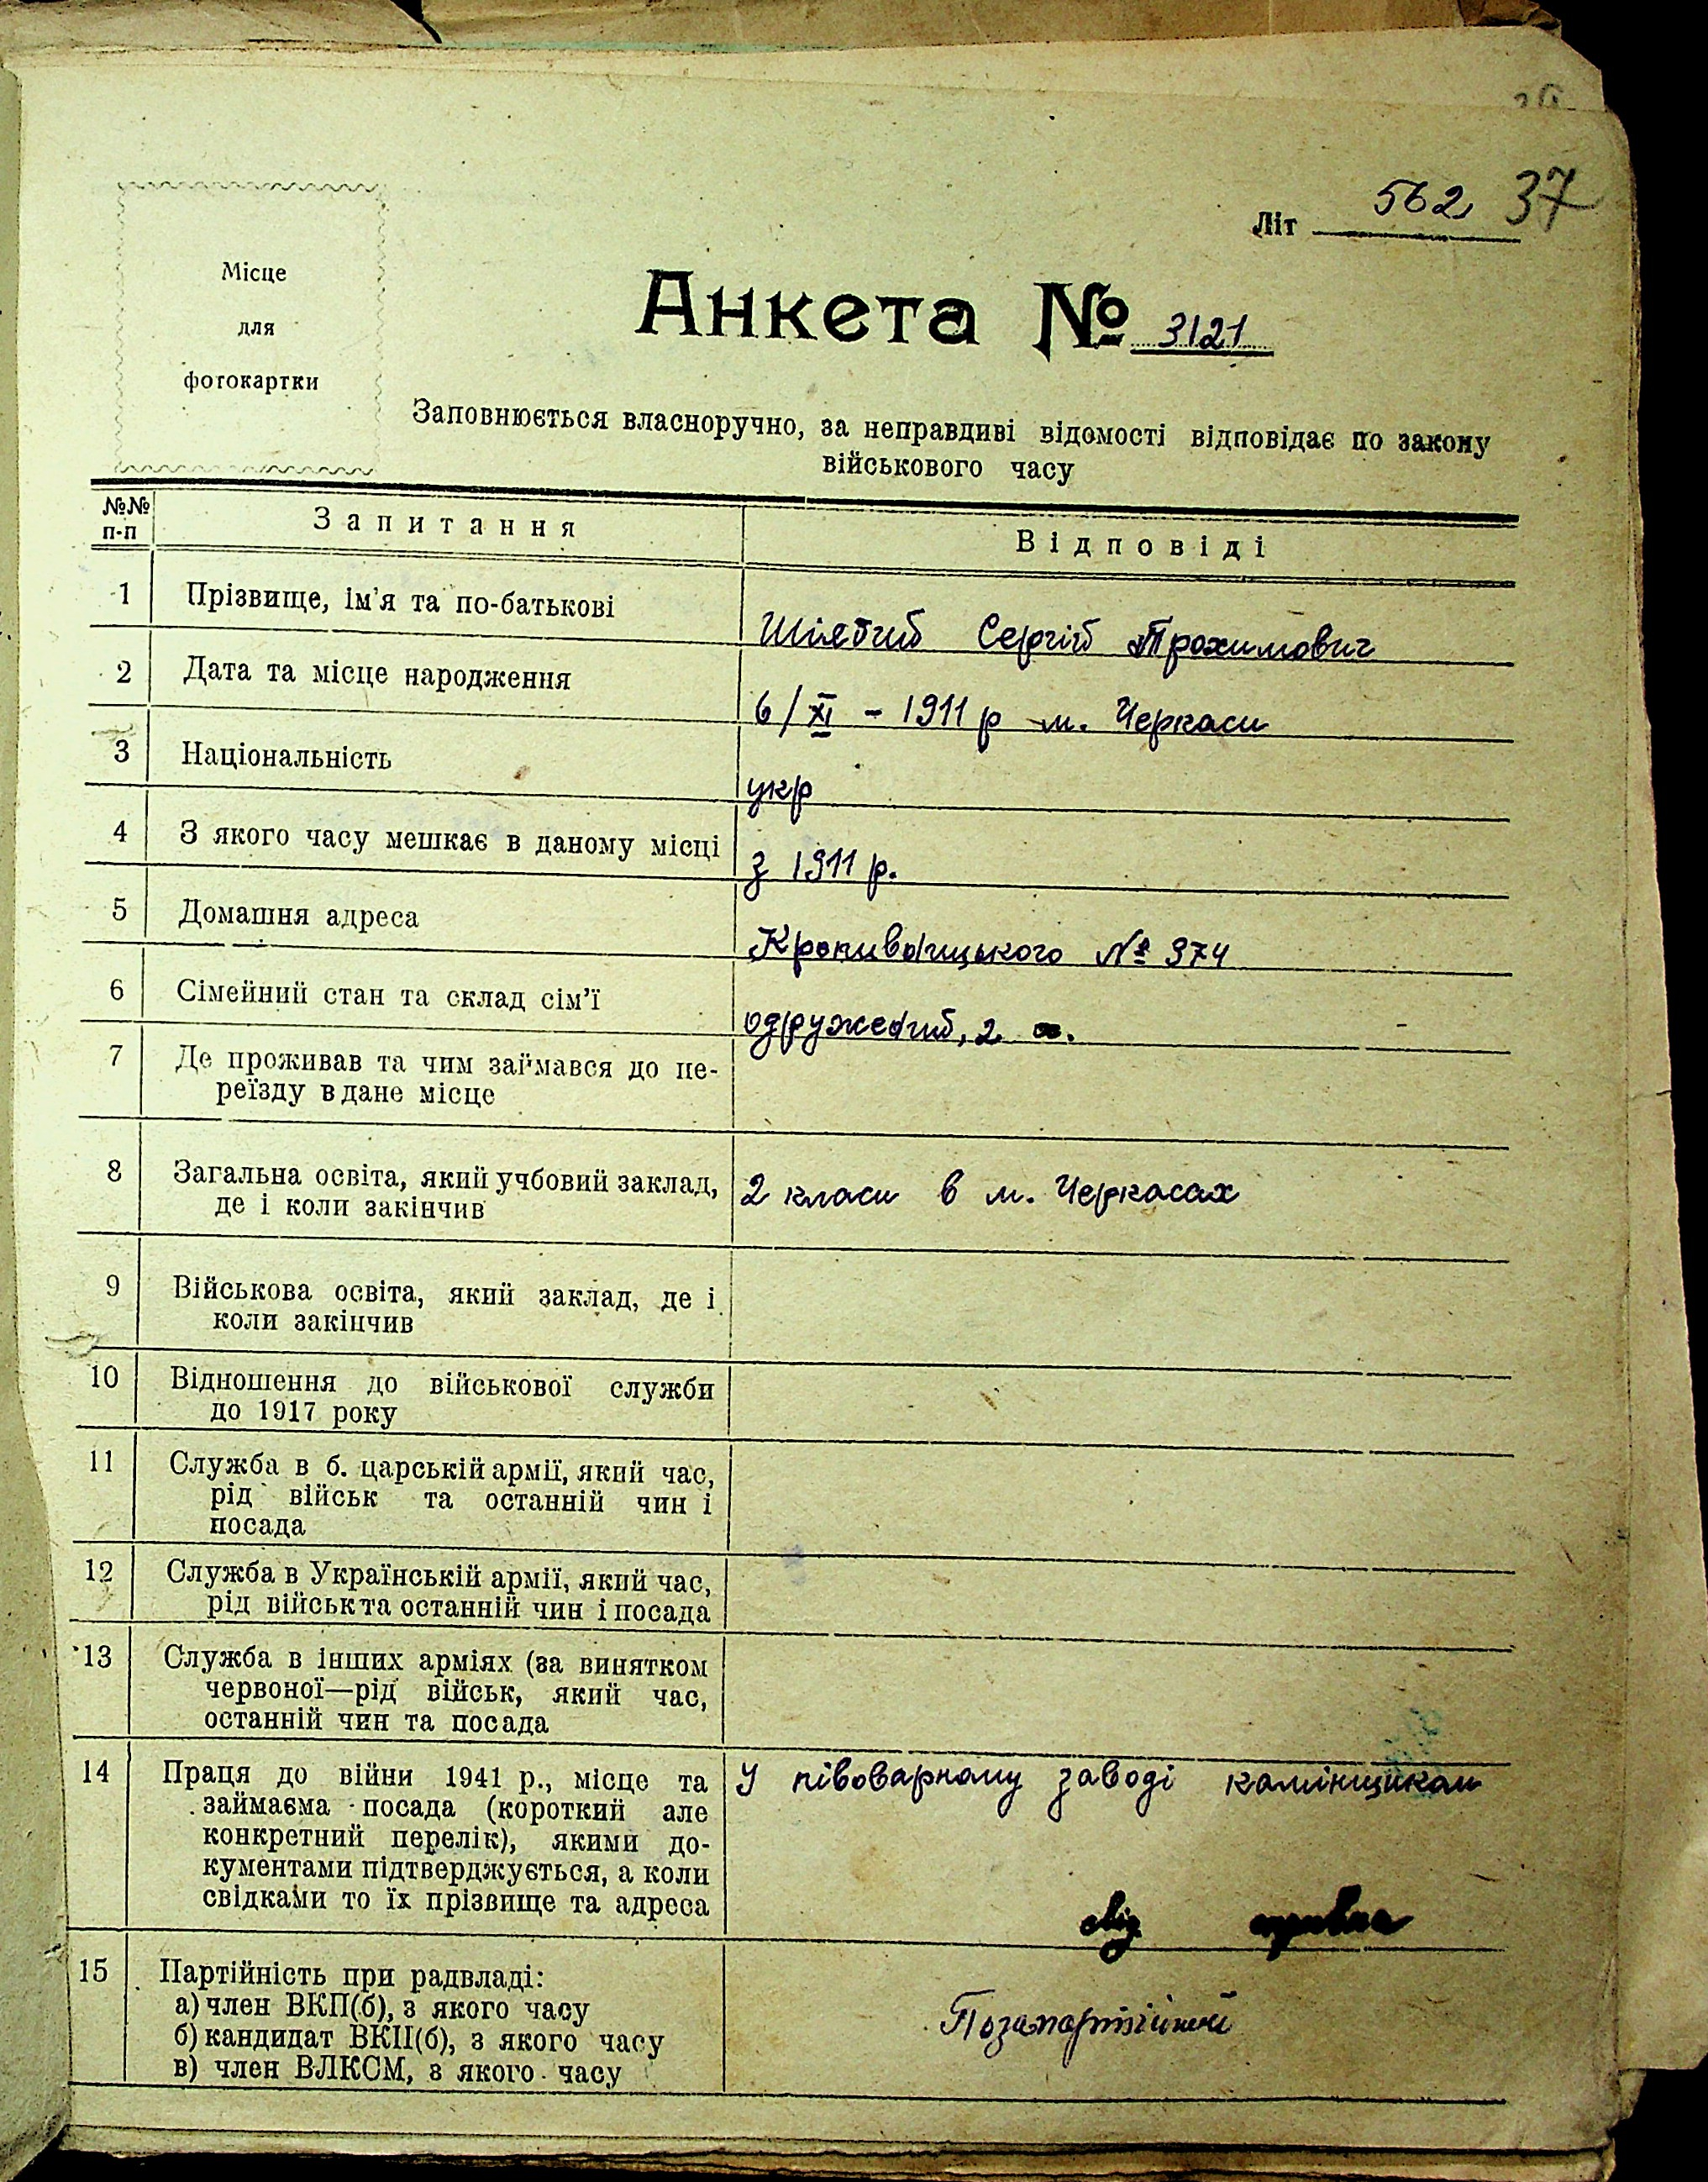 562 37
Літ
Місце
для
фотокартки
Анкета № 3121
Заповнюється власноручно, за неправдиві відомості відповідає по закону
військового часу
№№ п-п Запитання Відповіді
1 Прізвище, ім'я та по-батькові Сергій Трохимович
2 Дата та місце народження 6/XI - 1911 р м. Черкаси
3 Національність укр
4 З якого часу мешкає в даному місці з 1911 р.
5 Домашня адреса Кропивницького № 374
6 Сімейний стан та склад сім'ї одружений, 2
7 Де проживав та чим займався до пе-
реїзду в дане місце
8 Загальна освіта, який учбовий заклад, 2 класи в м. Черкасах
де і коли закінчив
9 Військова освіта, який заклад, де і
коли закінчив
10 Відношення до військової служби
до 1917 року
11 Служба в б. царській армії, який час,
рід військ та останній чин і
посада
12 Служба в Українській армії, який час,
рід військ та останній чин і посада
13 Служба в інших арміях (за винятком
червоної—рід військ, який час,
останній чин та посада
14 Праця до війни 1941 р., місце та У півоварному заводі камінщиком
займаєма посада (короткий але
конкретний перелік), якими до-
кументами підтверджується, а коли
свідками то їх прізвище та адреса
15 Партійність при радвладі:
а) член ВКП(б), з якого часу
Позапартійний
б) кандидат ВКП(б), з якого часу
в) член ВЛКСМ, з якого часу